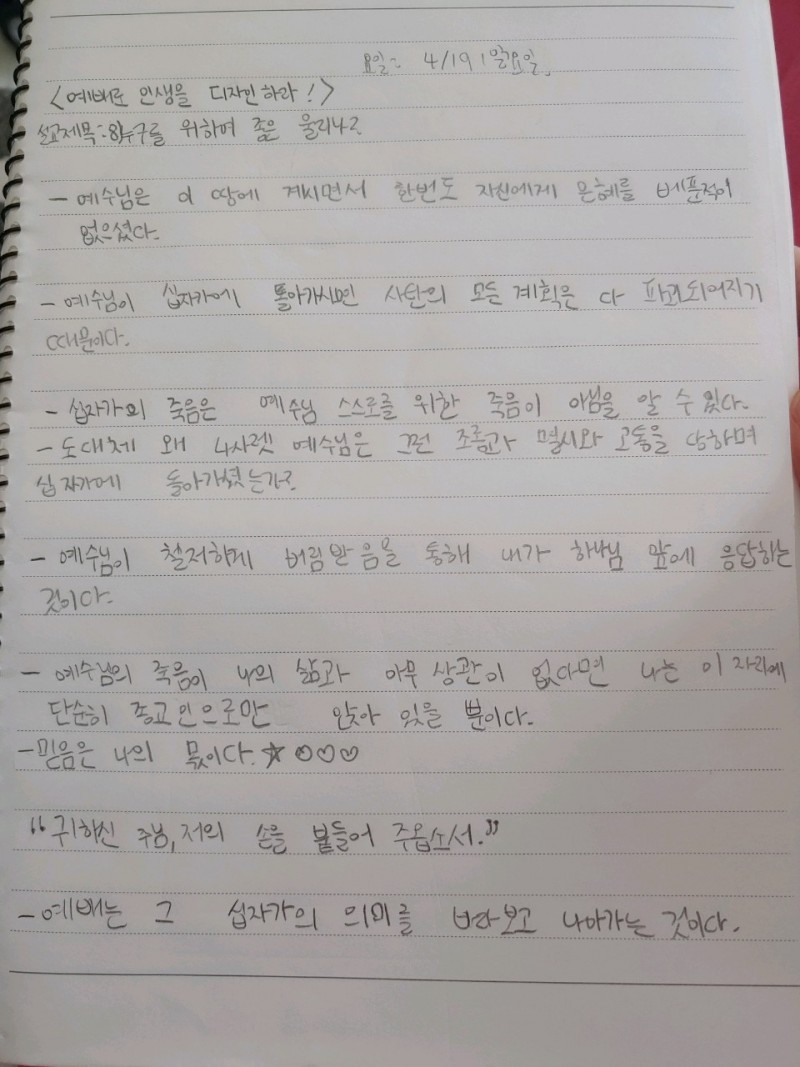 요일: 4/19 일요일.
<예배로 인생을 디자인하라!>
설교제목:8)누구를 위하여 종은 울리나?
- 예수님은 이 땅에 계시면서 한번도 자신에게 은혜를 베푼적이
없으셨다.
- 예수님이 십자가에 돌아가시면 사단의 모든 계획은 다 파괴되어지기
때문이다.
- 십자가의 죽음은 예수님 스스로를 위한 죽음이 아님을 알 수 있다.
- 도대체 왜 나사렛 예수님은 그런 조롱과 멸시와 고통을 당하며
십자가에 돌아가셨는가?
- 예수님이 철저하게 버림받음을 통해 내가 하나님 앞에 응답하는
것이다.
- 예수님의 죽음이 나의 삶과 아무 상관이 없다면 나는 이 자리에
단순히 종교인으로만 앉아 있을 뿐이다.
-믿음은 나의 몫이다.☆♡♡♡
"귀하신 주님, 저의 손을 붙들어 주옵소서."
-예배는 그 십자가의 의미를 바라보고 나아가는 것이다.